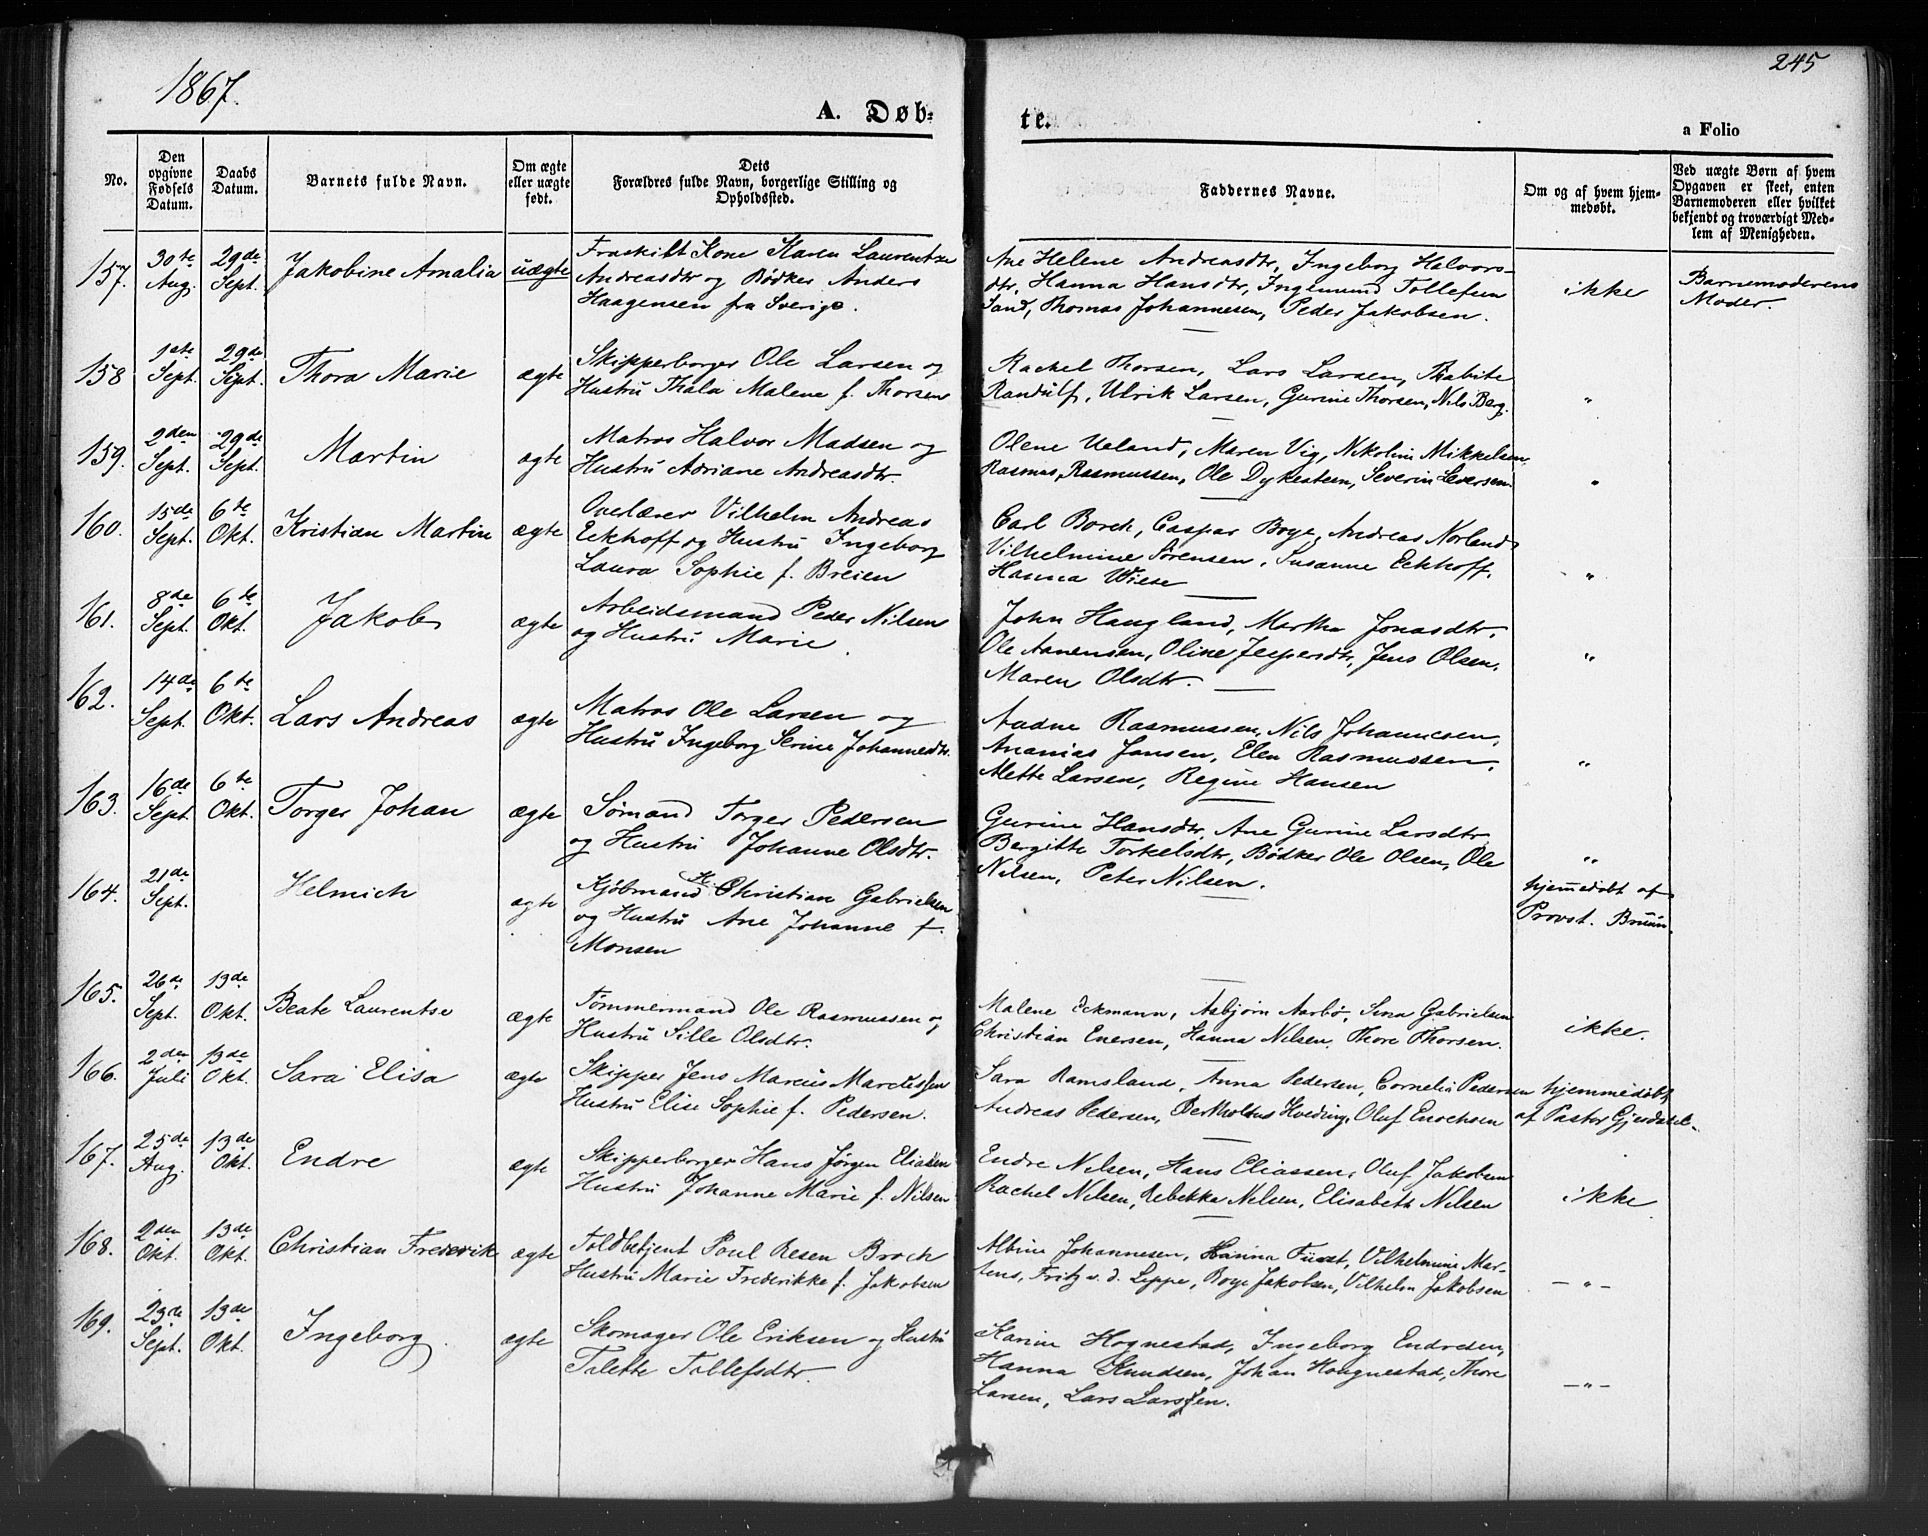 1867.
245
A. Døb-
te.
a Folio
No.
Den opgivne Fødsels Datum.
Daabs Datum.
Barnets fulde Navn.
Om ægte eller uægte født.
Dets Forældres fulde Navn, borgerlige Stilling og Opholdssted.
Faddernes Navne.
Om og af hvem hjemmedøbt.
Ved uægte Børn af hvem Opgaven er skeet, enten Barnemoderen eller hvilket bekjendt og troværdigt Medlem af Menigheden.
157. 30te Aug. 29de Sept. Jakobine Amalia uægte
Fraskilt Kone Karen Laurentze
Andreasdtr og Bødker Anders
Haagensen fra Sverige.
Ane Helene Andreasdtr, Ingeborg Halvors-
dtr, Hanna Hansdtr, Ingemund Tollefsen
Sand, Thomas Johannesen, Peder Jakobsen.
ikke
Barnemoderens
Moder.
158 1ste Sept. 29de Sept. Thora Marie ægte
Skipperborger Ole Larsen og
Hustru Thala Malene f. Thorsen
Rachel Thorsen, Lars Larsen, Thabite
Randulf, Ulrik Larsen, Gurine Thorsen, Nils Berg.
"
159. 2den Sept. 29de Sept. Martin ægte
Matros Halvor Madsen og
Hustru Adriane Andreasdtr.
Olene Ueland, Maren Vig, Nikoline Mikkelsen,
Rasmus Rasmussen, Ole Dyksteen, Severin Seversen.
"
160. 15de Sept. 6te Okt. Kristian Martin ægte
Overlærer Vilhelm Andreas
Eckhoff og Hustru Ingeborg
Laura Sophie f. Breien
Carl Borch, Caspar Boye, Andreas Norland,
Vilhelmine Sørensen, Susanne Eckhoff,
Hanna Wiese
"
161. 8de Sept. 6te Okt. Jakob ægte
Arbeidsmand Peder Nilsen
og Hustru Marie.
John Haugland, Martha Jonasdtr,
Ole Aanensen, Oline Jespersdtr, Jens Olsen,
Maren Olsdtr.
"
162. 14de Sept. 6te Okt. Lars Andreas ægte
Matros Ole Larsen og
Hustru Ingeborg Serine Johannesdtr.
Audne Rasmussen, Nils Johannesen,
Ananias Jansen, Elen Rasmussen,
Mette Larsen, Regine Hansen
"
163. 16de Sept 6te Okt. Torger Johan ægte
Sømand Torger Pedersen
og Hustru Johanne Olsdtr.
Gurine Hansdtr, Ane Gurine Larsdtr,
Bergitte Torkelsdtr, Bødker Ole Olsen, Ole
Nilsen, Peter Nilsen.
"
164. 21de Sept. Helmich ægte
Kjøbmand H. Christian Gabrielsen
og Hustru Ane Johanne f.
Monsen
hjemmedøbt af
Provst. Bruun.
165. 26de Sept. 13de Okt. Beate Laurentse ægte
Tømmermand Ole Rasmussen og
Hustru Sille Olsdtr.
Malene Eckmann, Asbjørn Aarbø, Sina Gabrielsen
Christian Enersen, Hanna Nilsen, Thore Thorsen.
ikke.
166. 2den Juli 13de Okt. Sara Elisa ægte
Skipper Jens Marcus Marcussen
Hustru Elise Sophie f. Pedersen.
Sara Ramsland, Anna Pedersen, Cornelia Pedersen
Andreas Pedersen, Bertholdus Hveding, Oluf Enochsen
hjemmedøbt
af Pastor Gjerdahl.
167. 25de Aug. 13de Okt. Endre ægte
Skipperborger Hans Jørgen Eliassen
Hustru Johanne Marie f. Nilsen
Endre Nilsen, Hans Eliassen, Oluf Jakobsen
Rachel Nilsen, Rebekka Nilsen, Elisabeth Nilsen
ikke
168. 2den Okt. 13de Okt. Christian Frederik ægte
Toldbetjent Poul Resen Broch
Hustru Marie Frederikke f. Jakobsen
Albine Johannesen, Hanna Furst, Vilhelmine Mar-
tens, Fritz v. d. Lippe, Boye Jakobsen, Vilhelm Jakobsen
- " -
169. 23de Sept. 13de Okt. Ingeborg. ægte
Skomager Ole Eriksen og Hustru
Talette Tollefsdtr.
Karine Hognestad, Ingeborg Endresen,
Hanna Knudsen, Johan Hougnestad, Thore
Larsen, Lars Larssen.
- " -